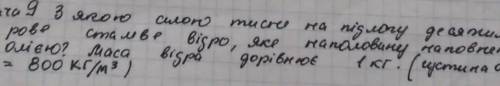 ча 9 З якою силою тисне на підлогу десяжи
рове сталве відро, яке наполовину наповнен
олією? Маса відра дорівнює 1 кг. (густина о
= 800 кг/м³)